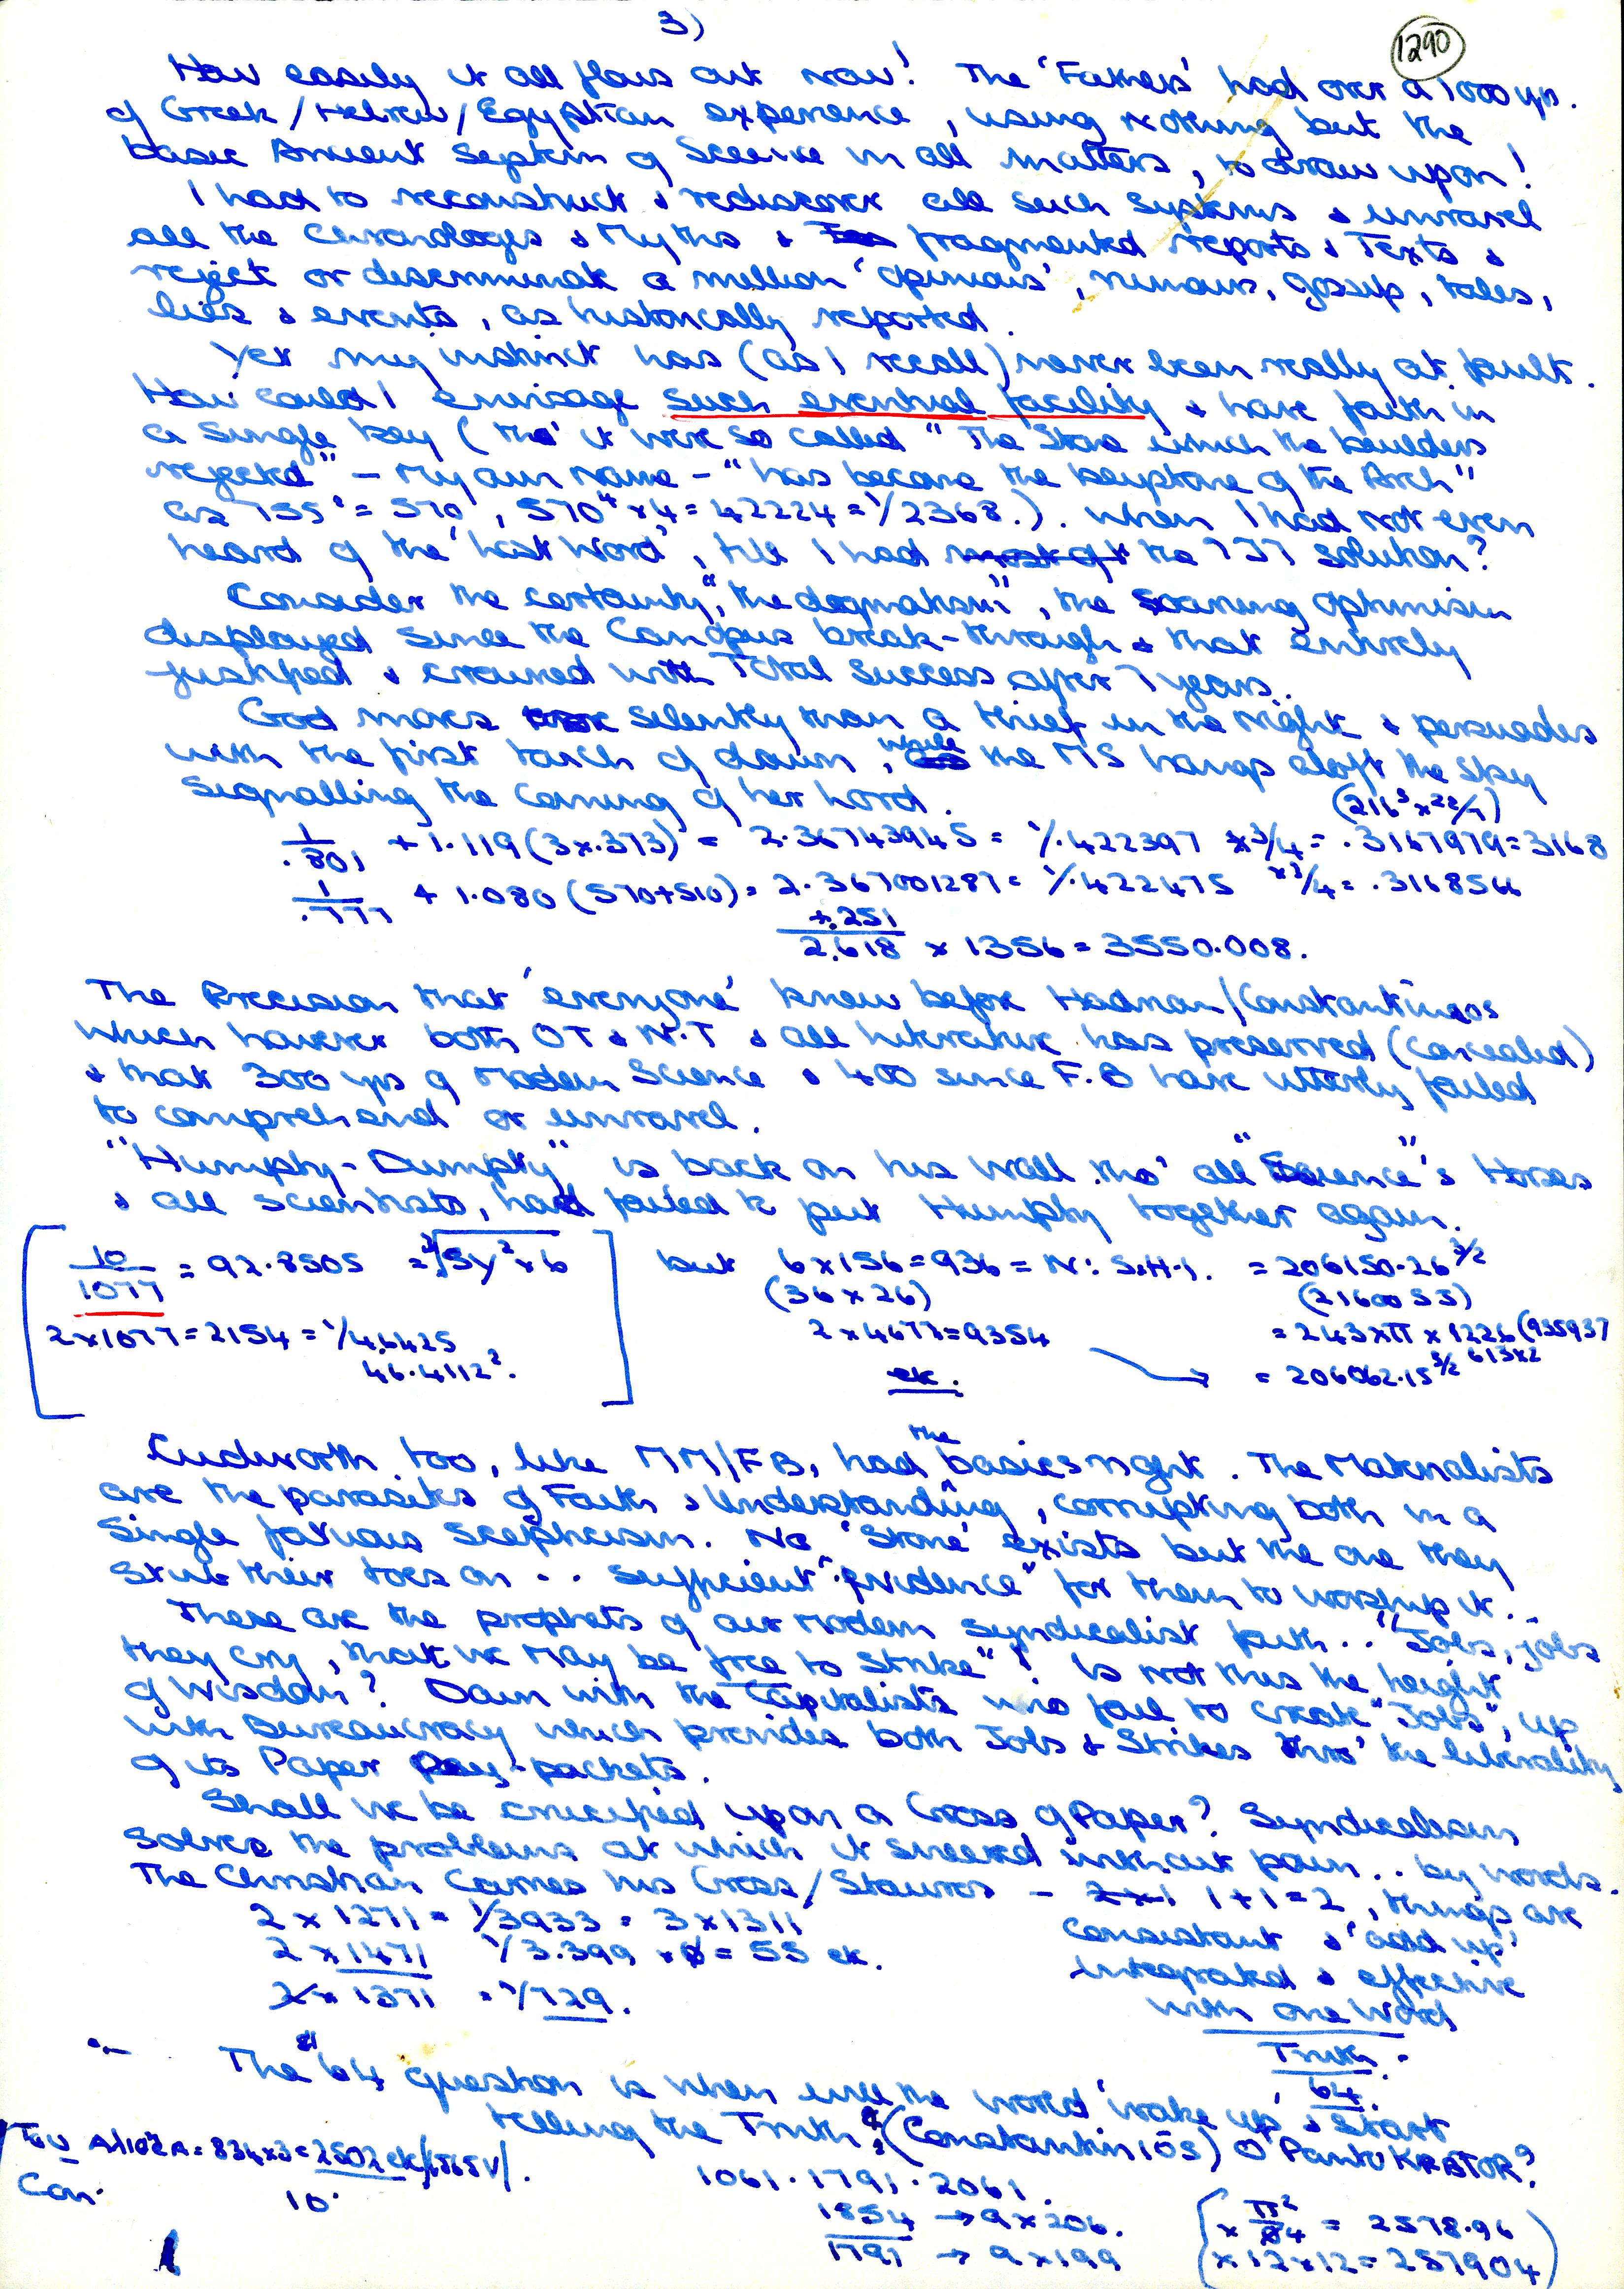 3)
1290
How easily it all flows out now! The 'Fathers' had over a 1000 yrs.
of Greek/Hebrew/Egyptian experience, using nothing but the
basic Ancient System of Science in all matters, to draw upon!
I had to reconstruct & rediscover all such systems & unravel
all the Chronologies & Myths & fragmented reports & Texts &
reject or discriminate a million 'opinions', rumours, gossip, tales,
lies & events, as historically reported.
Yet my instinct has (as I recall) never been really at fault.
How could I envisage such eventual facility & have faith in
a single key (tho' it were so called "The Stone which the builders
rejected" – My own name – "has become the keystone of the Arch"
as 755' = 570', 570⁴ x 4 = 42224 = 1/2368.). When I had not even
heard of the 'Last Word', till I had the 737 solution?
Consider the certainty, "the dogmatism", the soaring optimism
displayed since the Canopus break-through & that entirely
justified & crowned with Total Success after 7 years.
God moves silently than a thief in the night & persuades
with the first touch of dawn, while the MS hangs aloft the sky
signalling the coming of her Lord.
(216³ x 22/7)
1/.801 + 1.119 (3 x .373) = 2.36743945 = 1/.422397 x 3/4 = .3167979 = 3168
1/.777 + 1.080 (570+510) = 2.367001287 = 1/.422475 x 3/4 = .3168566
+.251
2.618 x 1356 = 3550.008.
The Precision that 'everyone' knew before Hadrian/Constantinos
which however both OT & N.T & all literature has preserved (concealed)
& that 300 yrs of Modern Science & 400 since F.B have utterly failed
to comprehend or unravel.
"Humpty-Dumpty" is back on his Wall tho' all "Science"'s Horses
& all scientists, had failed to put Humpty together again.
10/1077 = 92.8505 = ³√5y² x 6
but 6 x 156 = 936 = N: S.H.1. = 206150.26^3/2
(36 x 26)
(2160055)
2 x 1077 = 2154 = 1/4.6425
2 x 4677 = 9354
= 243 x π x 1226 (935937
46.4112².
613x2
ek.
= 206062.15^3/2
Cudworth too, like MM/FB, had the basics right. The Materialists
are the parasites of Faith & Understanding, corrupting both in a
single fatuous scepticism. No 'Stone' exists but the one they
stub their toes on .. sufficient "evidence" for them to worship it..
These are the prophets of our modern syndicalist faith.. "Jobs, jobs
they cry, that we may be free to strike"! Is not this the height
of Wisdom? Down with the Capitalists who fail to create "Jobs", up
with Bureaucracy which provides both Jobs & Strikes thro' the liberality
of its Paper Pay-packets.
Shall we be crucified upon a Cross of Paper? Syndicalism
solves the problems at which it sneered without pain.. by words.
The Christian Carries his Cross/Stauros – 2x1 1+1=2, things are
2 x 1271 = 1/3933 = 3 x 1311
consistant & 'add up'
2 x 1471 1/3.399 x ø = 55 ek.
integrated & effective
2 x 1371 = 1/729.
with one Word
Truth.
64.
The "64 question is when will the world 'wake up' & start
telling the Truth? (Constantiniōs) O PantoKRATOR?
= 834 x 3 = 2502 ek
Con.
10.
1061.1791.2061.
1854 → 9 x 206.
1791 → 9 x 199
(x π²/84 = 2578.96
(x 12 x 12 = 257904)